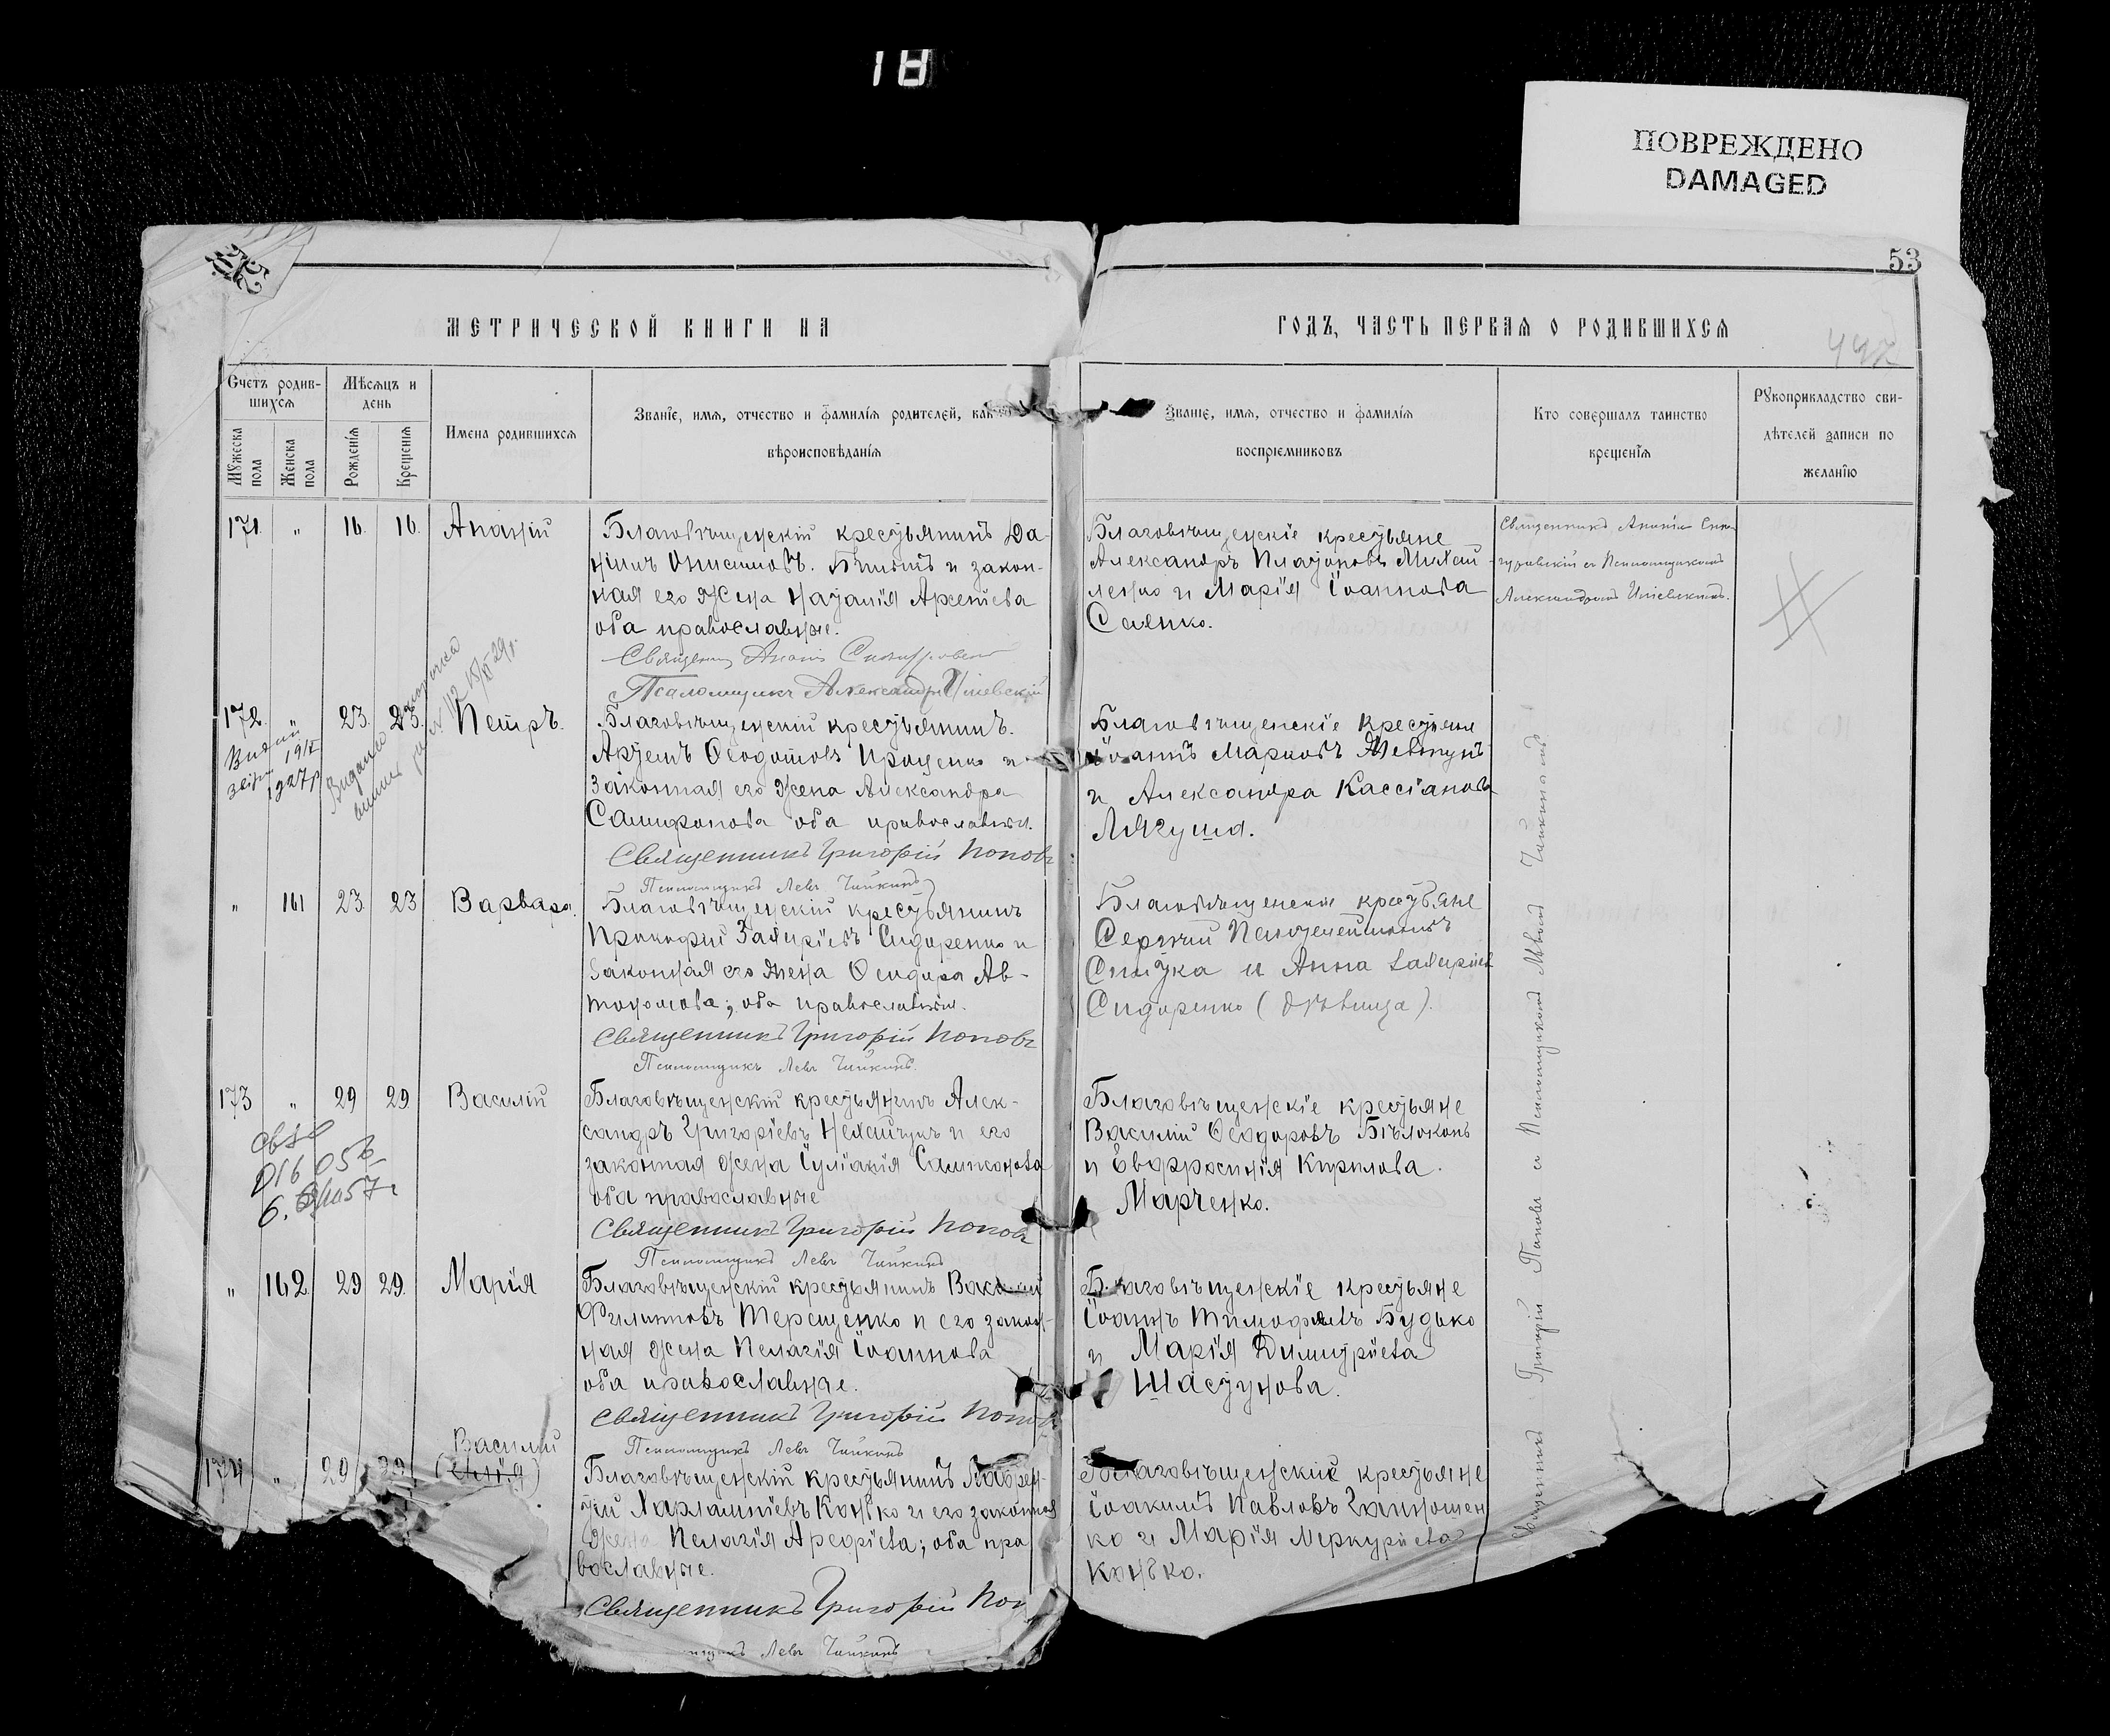 18
ПОВРЕЖДЕНО
DAMAGED
52
53
МЕТРИЧЕСКОЙ КНИГИ НА
ГОДЪ, ЧАСТЬ ПЕРВАЯ О РОДИВШИХСЯ
447
Счетъ родив-
шихся
Мѣсяцъ и
день
Мужеска пола
Женска пола
Рожденія
Крещенія
Имена родившихся
Званіе, имя, отчество и фамилія родителей, как
вѣроисповѣданія
Званіе, имя, отчество и фамилія
воспріемниковъ
Кто совершалъ таинство
крещенія
Рукоприкладство сви-
дѣтелей записи по
желанію
171. " 16. 16. Ананій
Благовѣщенскій крестьянинъ Да-
ніилъ Онисимовъ. и закон-
ная его жена Наталія Арсеніева
оба православные.
Священ Ананія
Псаломщикъ Александръ
Благовѣщенскіе крестьяне
Александръ Платоновъ Михай
ленко и Марія Іоаннова
Саенко.
Священникъ Ананія
съ Псаломщикомъ
Александромъ
172. " 23. 23. Петръ.
1927р
Благовѣщенскій крестьянинъ.
Артемъ Ѳеодотовъ Проценко и
Законная его жена Александра
оба православны.
Священникъ Григорій Поповъ
Псаломщикъ Левъ Чайкинъ
Благовѣщенскіе крестьяне
Іоаннъ Марковъ Жевтунъ
и Александра Кассіанова
Лягуша.
" 161 23 23 Варвара.
Благовѣщенскій крестьянинъ
Прокофій Сидоренко и
законная его жена Ѳеодора Ав-
тономова; оба православны.
Священникъ Григорій Поповъ
Псаломщикъ Левъ Чайкинъ.
Благовѣщенскіе крестьяне
Сергій Пантелеймоновъ
и Анна
Сидоренко (дѣвица).
173 " 29 29 Василій
Благовѣщенскій крестьянинъ Алек-
сандръ Григорьевъ Нехайчукъ и его
законная жена Іуліанія Сампсонова
оба православные
Священникъ Григорій Поповъ
Псаломщикъ Левъ Чайкинъ
Благовѣщенскіе крестьяне
Василій Ѳеодоровъ Бѣлоконь
и Евфросинія Кирилова
Марченко.
" 162 29 29. Марія
Благовѣщенскій крестьянинъ Василій
Филиповъ Терещенко и его закон-
ная жена Пелагія Іоаннова
оба православные.
Священникъ Григорій Поповъ
Псаломщикъ Левъ Чайкинъ
Благовѣщенскіе крестьяне
Іоаннъ Тимофеевъ Будько
и Марія Димитріева
Шастунова.
174 " 29 29 Василій
Благовѣщенскій крестьянинъ Лаврен-
тій Харлампіевъ Конько и его законная
жена Пелагія Арефіева; оба пра
вославные.
Священникъ Григорій Поп
Левъ Чайкинъ
Благовѣщенскіе крестьяне
Іоакимъ Павловъ
ко и Марія Меркуріева
Конько.
Священникъ Григорій Поповъ съ Псаломщикомъ Львомъ Чайкинымъ